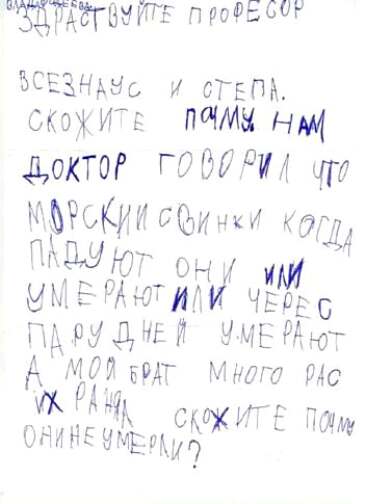 ЗДРАСТВУЙТЕ ПРОФЕСОР
ВСЕЗНАУС И СТЕПА.
СКОЖИТЕ ПОЧМУ НАМ
ДОКТОР ГОВОРИЛ ЧТО
МОРСКИИ СВИНКИ КОГДА
ПАДУЮТ ОНИ ИЛИ
УМЕРАЮТ ИЛИ ЧЕРЕС
ПАРУ ДНЕЙ УМЕРАЮТ
А МОЙ БРАТ МНОГО РАС
ИХ РАНЯЛ СКОЖИТЕ ПОЧМУ
ОНИ НЕ УМЕРЛИ?